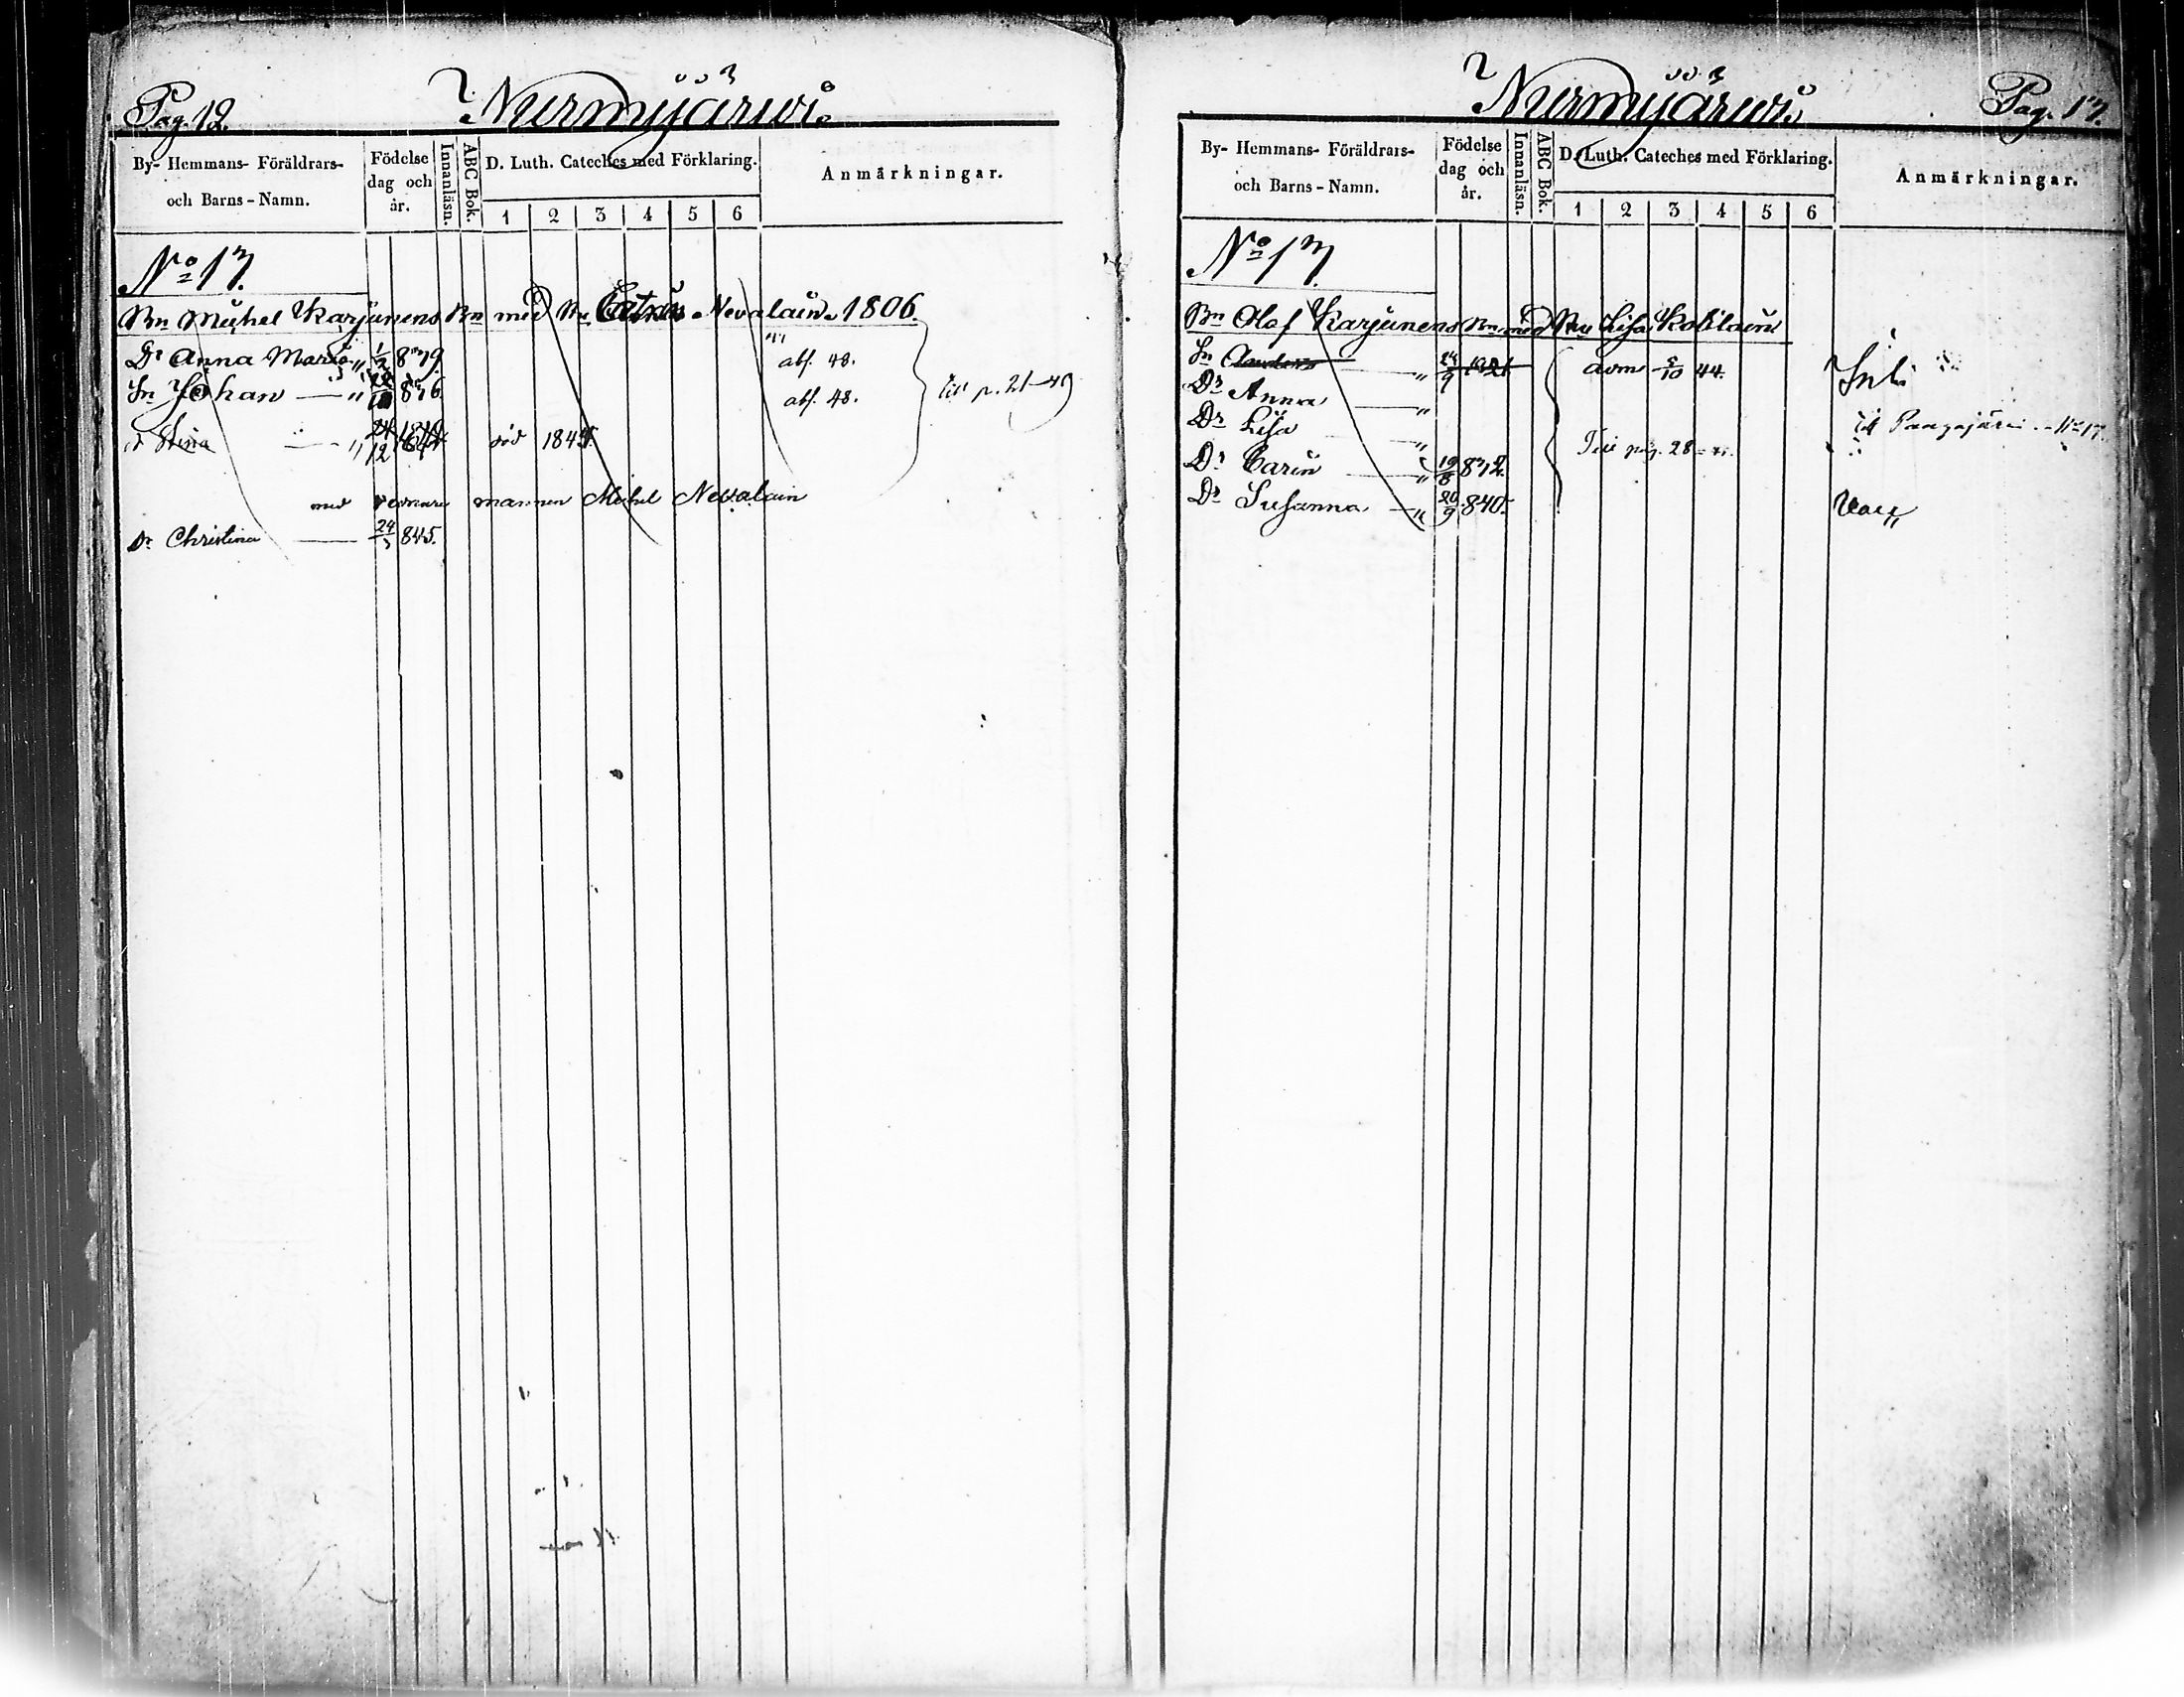 Pag. 12.
Nurmijärwi.
By- Hemmans- Föräldrars-
och Barns-Namn.
Födelse
dag och
år.
Innanläsn.
ABC Bok.
D. Luth. Cateches med Förklaring.
1 2 3 4 5 6
Anmärkningar.
No 17.
Bn Michel Karjunens Bn med Catrin Nevalain 1806.
Dr Anna Maria 839. abs. 48.
Sn Johan 836. abs. 48.
till p. 21-49
Stina död
med mannen Michel Nevalain
Dr Christina 845.
Nurmijärwi.
Pag. 13.
By- Hemmans- Föräldrars-
och Barns-Namn.
Födelse
dag och
år.
Innanläsn.
ABC Bok.
D. Luth. Cateches med Förklaring.
1 2 3 4 5 6
Anmärkningar.
No 17.
Bn Olof Karjunens med Lisa
Sn 24/9 adm 5/10 44.
Dr Anna
Dr Lisa
pag. 28
Dr Carin 19/8 832.
Dr Susanna 20/9 840.